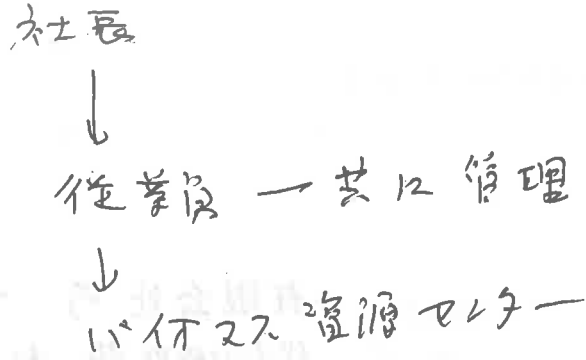 社長
↓
従業員 ー 共に管理
↓
バイオマス資源センター